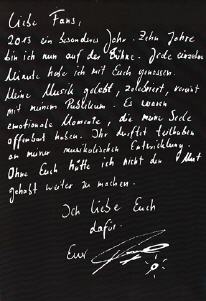 Liebe Fans,
2013 ein besonderes Jahr. Zehn Jahre
bin ich nun auf der Bühne. Jede einzelne
Minute habe ich mit Euch genossen.
Meine Musik gelebt, zelebriert, vereint
mit meinem Publikum. Es waren
emotionale Momente, die meine Seele
offenbart haben. Ihr durftet teilhaben
an meiner musikalischen Entwicklung.
Ohne Euch hätte ich nicht den Mut
gehabt weiter zu machen.
Ich liebe Euch
dafür.
Eure